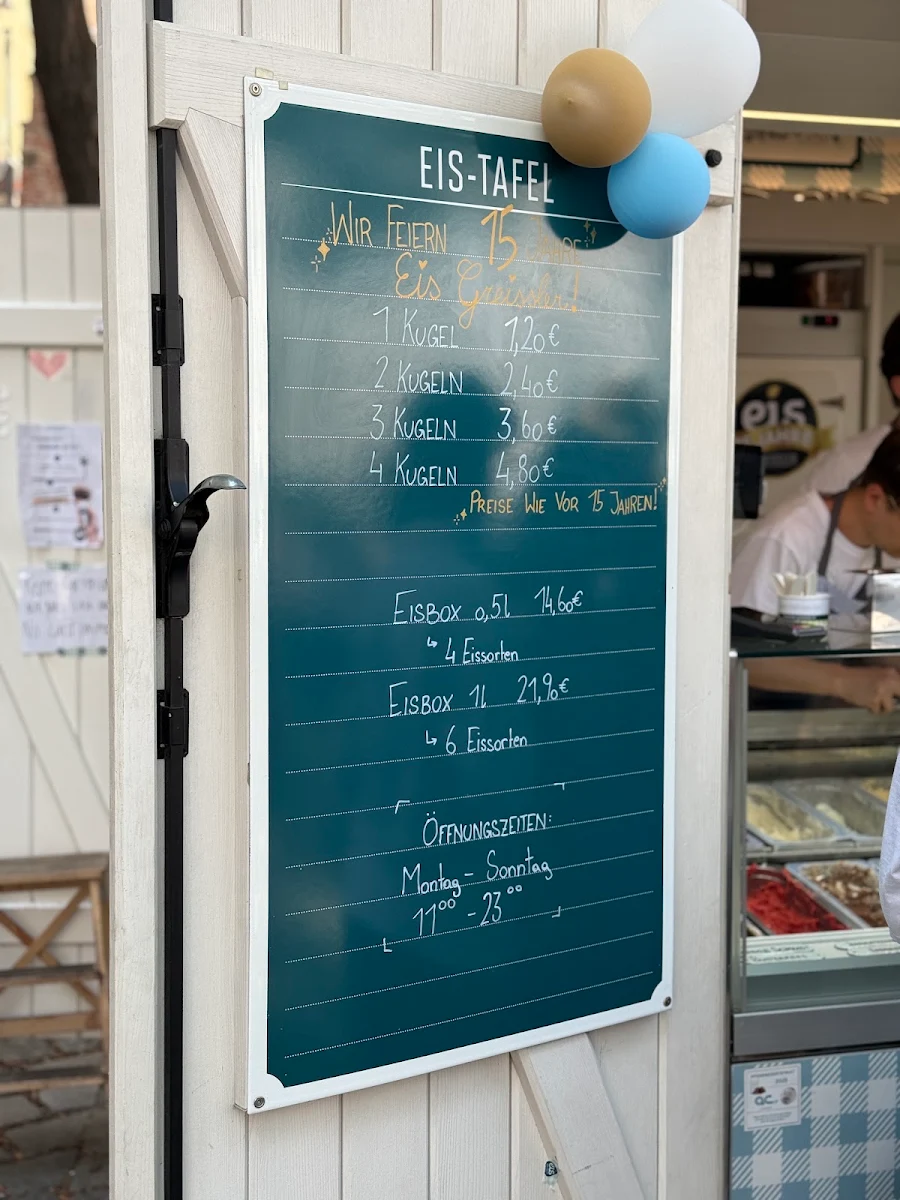 EIS-TAFEL
WIR FEIERN 15 JAHRE
Eis Greissler!
1 KUGEL 1,20€
2 KUGELN 2,40€
3 KUGELN 3,60€
4 KUGELN 4,80€
PREISE WIE VOR 15 JAHREN!
EISBOX 0,5l 14,60€
↳ 4 Eissorten
EISBOX 1l 21,90€
↳ 6 Eissorten
ÖFFNUNGSZEITEN:
Montag - Sonntag
11°° - 23°°
eis